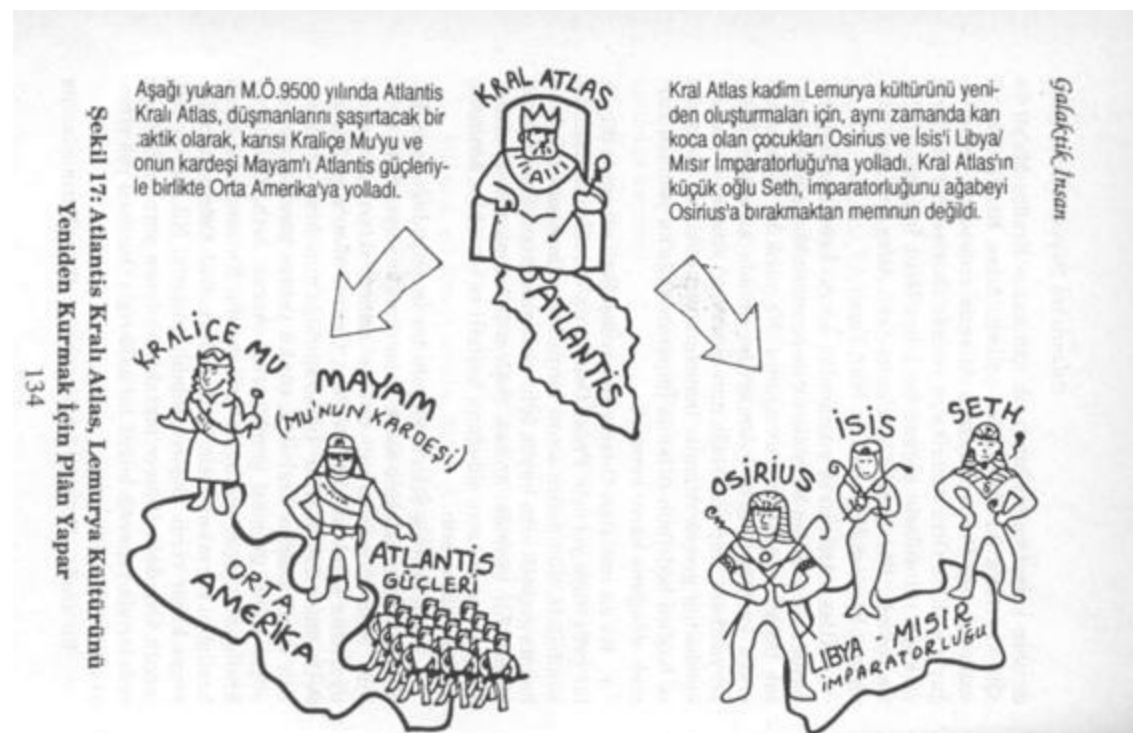 Galaktik İnsan
Aşağı yukarı M.Ö.9500 yılında Atlantis
Kralı Atlas, düşmanlarını şaşırtacak bir
.aktik olarak, karısı Kraliçe Mu'yu ve
onun kardeşi Mayam'ı Atlantis güçleriy-
le birlikte Orta Amerika'ya yolladı.
KRAL ATLAS
A
Kral Atlas kadim Lemurya kültürünü yeni-
den oluşturmaları için, aynı zamanda karı
koca olan çocukları Osirius ve İsis'i Libya/
Mısır İmparatorluğu'na yolladı. Kral Atlas'ın
küçük oğlu Seth, imparatorluğunu ağabeyi
Osirius'a bırakmaktan memnun değildi.
ATLANTİS
KRALİÇE MU
MAYAM
(MU'NUN KARDEŞİ)
ATLANTİS
GÜÇLERİ
ORTA
AMERİKA
OSİRİUS
İSİS
SETH
LIBYA - MISIR
İMPARATORLUĞU
Şekil 17: Atlantis Kralı Atlas, Lemurya Kültürünü
Yeniden Kurmak İçin Plân Yapar
134